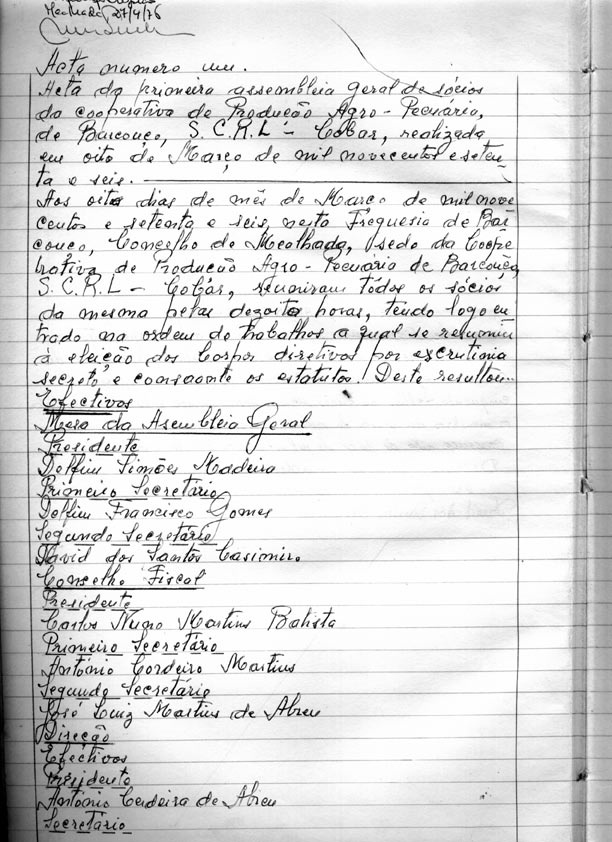 Mealhada, 27/4/76
Acta numero um.
Acta da primeira assembleia geral de sócios
da cooperativa de Produção Agro-Pecuária,
de Barcouço, S.C.R.L - Cobar, realizada
em oito de Março de mil novecentos e seten-
ta e seis.
Aos oito dias de mês de Março de mil nove
centos e setenta e seis, nesta Freguesia de Bar
couço, Concelho de Mealhada, sede da Coope
rativa de Produção Agro-Pecuária de Barcouço,
S.C.R.L - Cobar, reuniram todos os sócios
da mesma pelas dezoito horas, tendo logo en-
trado na ordem de trabalhos a qual se resumiu
à eleição dos Corpos diretivos por escrutinio
secreto, e consoante os estatutos. Deste resultou...
Efectivos
Mesa da Asembleia Geral
Presidente
Delfim Simões Madeira
Primeiro Secretário
Delfim Francisco Gomes
Segundo Secretário
David dos Santos Casimiro
Conselho Fiscal
Presidente
Carlos Nuno Martins Batista
Primeiro Secretário
António Cordeiro Martins
Segundo Secretário
José Luiz Martins de Abreu
Direcção
Efectivos
Presidente
António Cerdeira de Abreu
Secretário